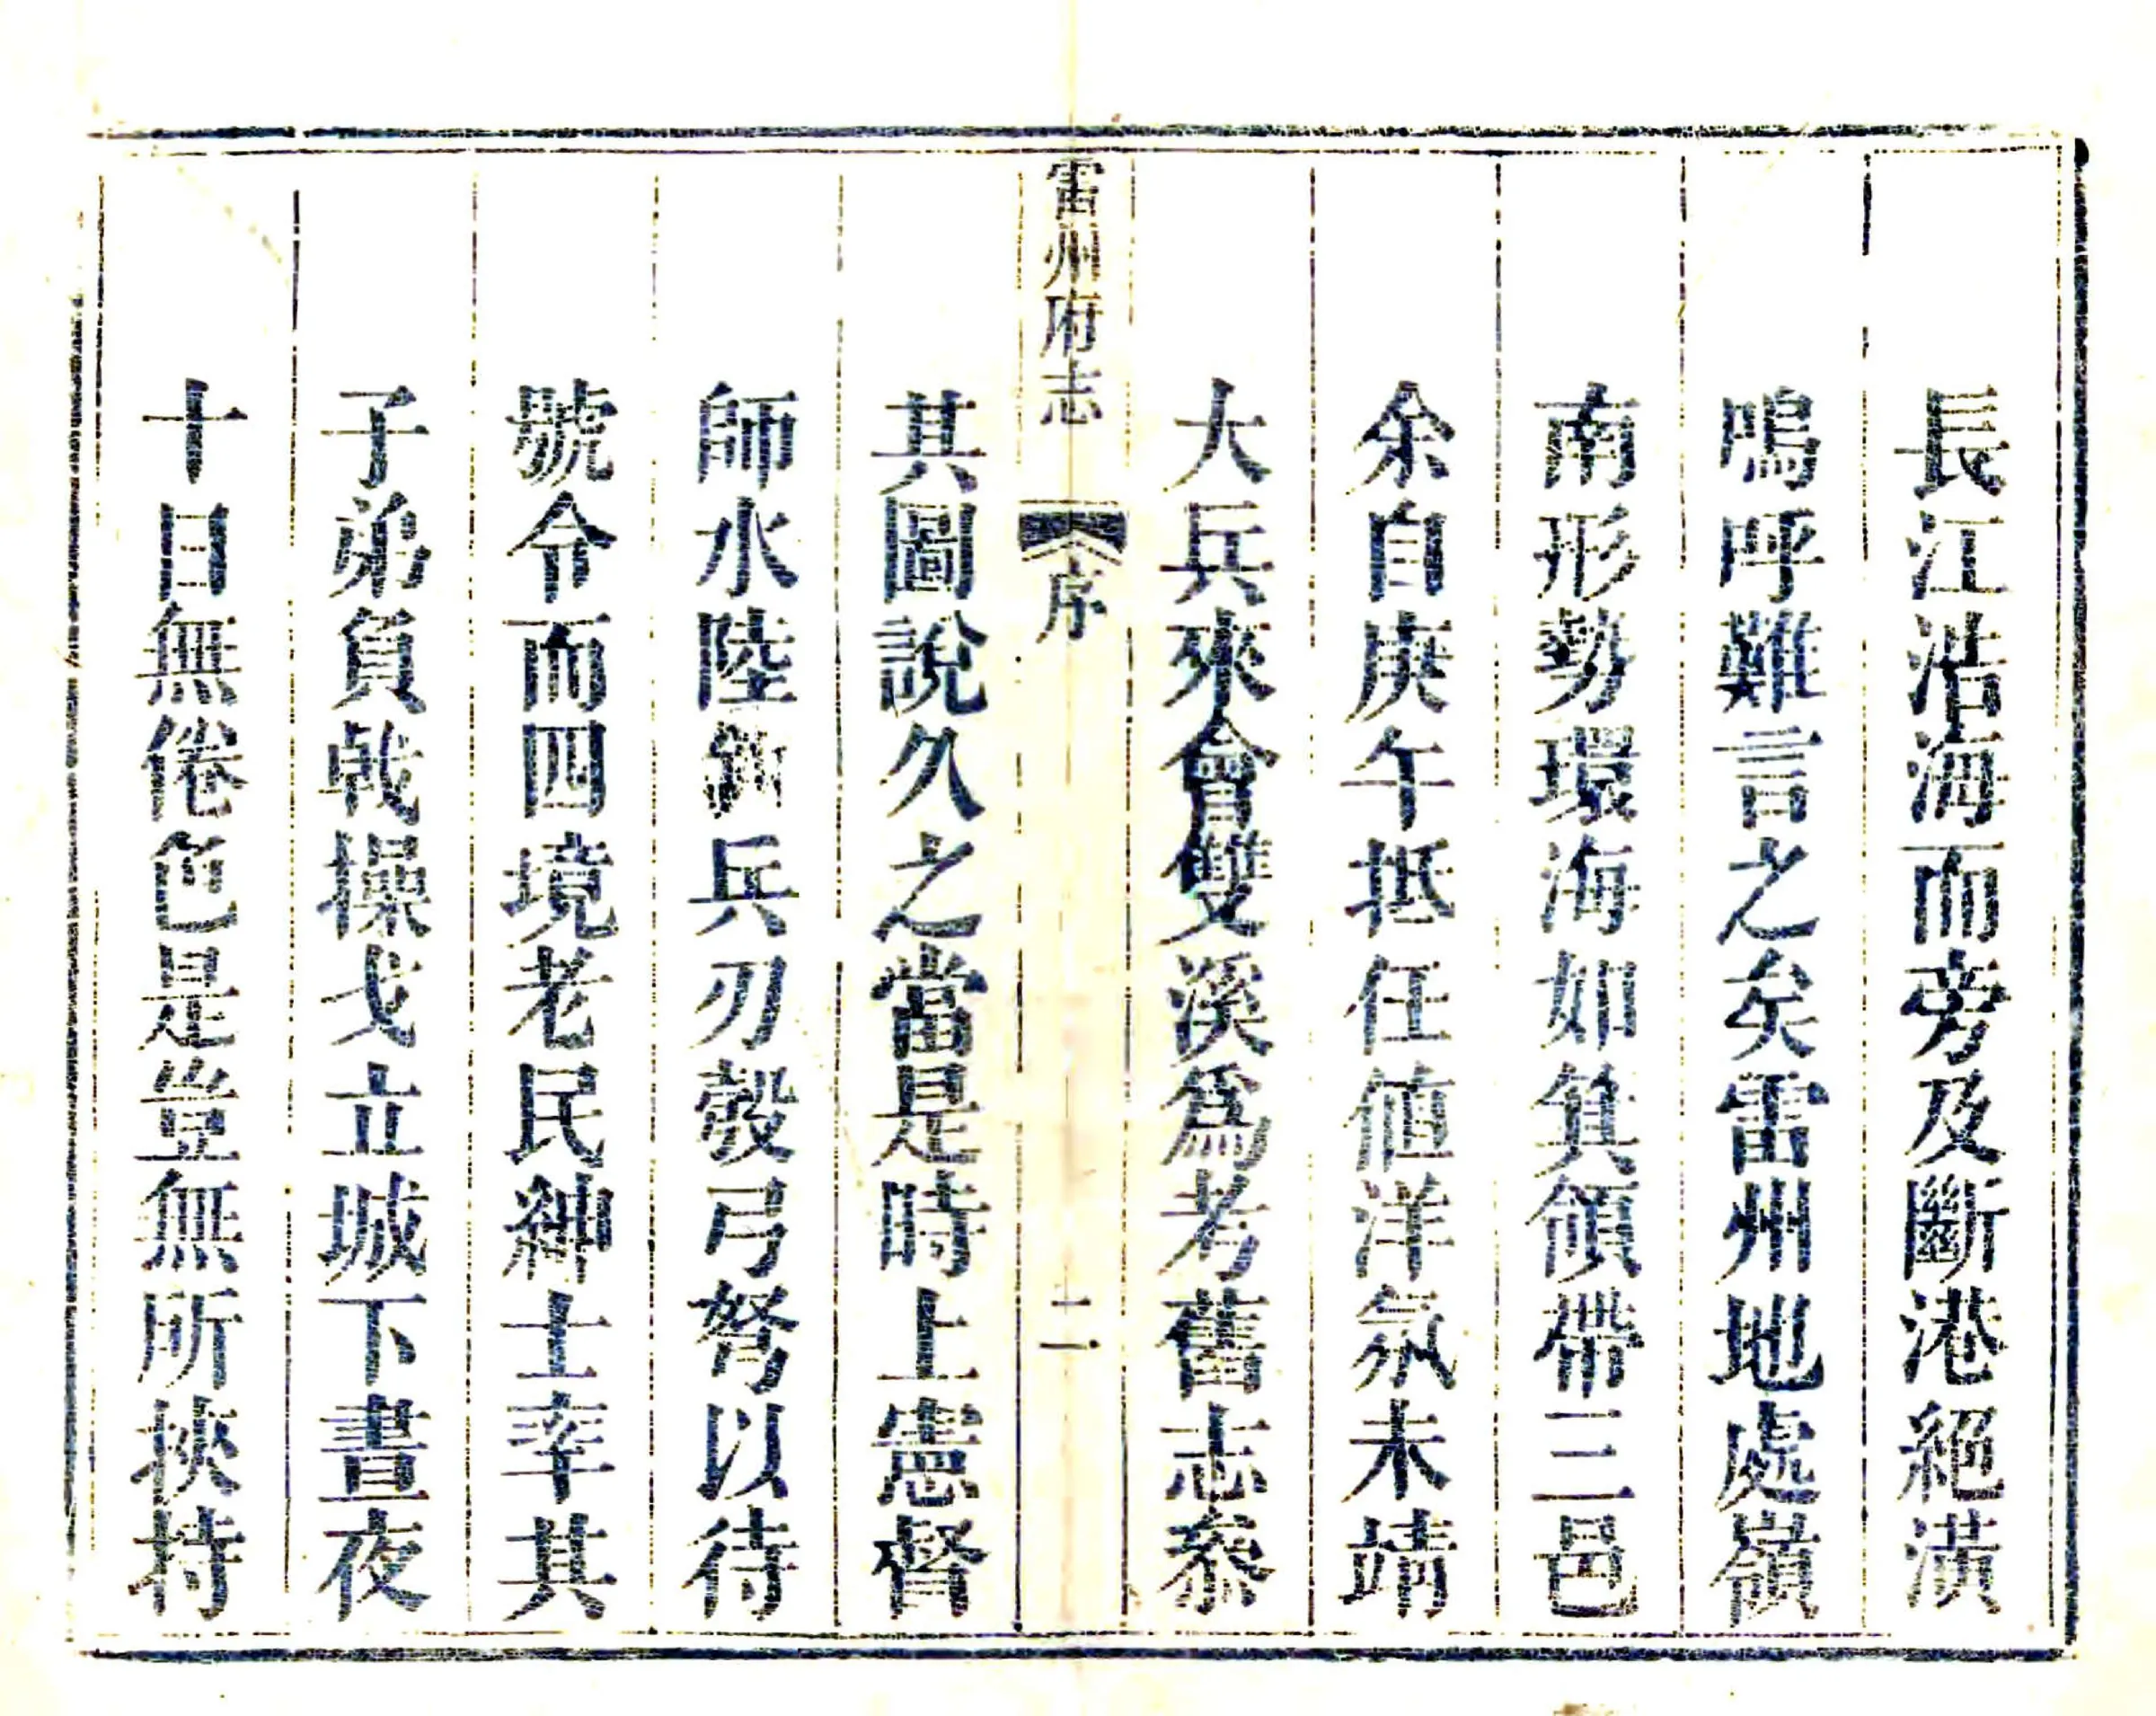 長江浩海而旁及斷港絕潢
嗚呼難言之矣雷州地處嶺
南形勢環海如箕領帶三邑
余自庚午抵任值洋氛未靖
大兵來會雙溪爲考舊志叅
雷州府志
序
二
其圖說久之當是時上憲督
師水陸兵刃彀弓弩以待
號令而四境老民紳士率其
子弟負戟操戈立城下晝夜
十日無倦色是豈無所挾持